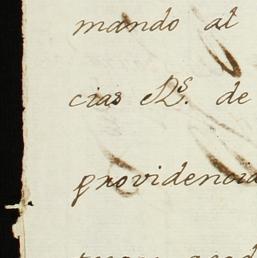 mando al
cias Rs. de
providencia